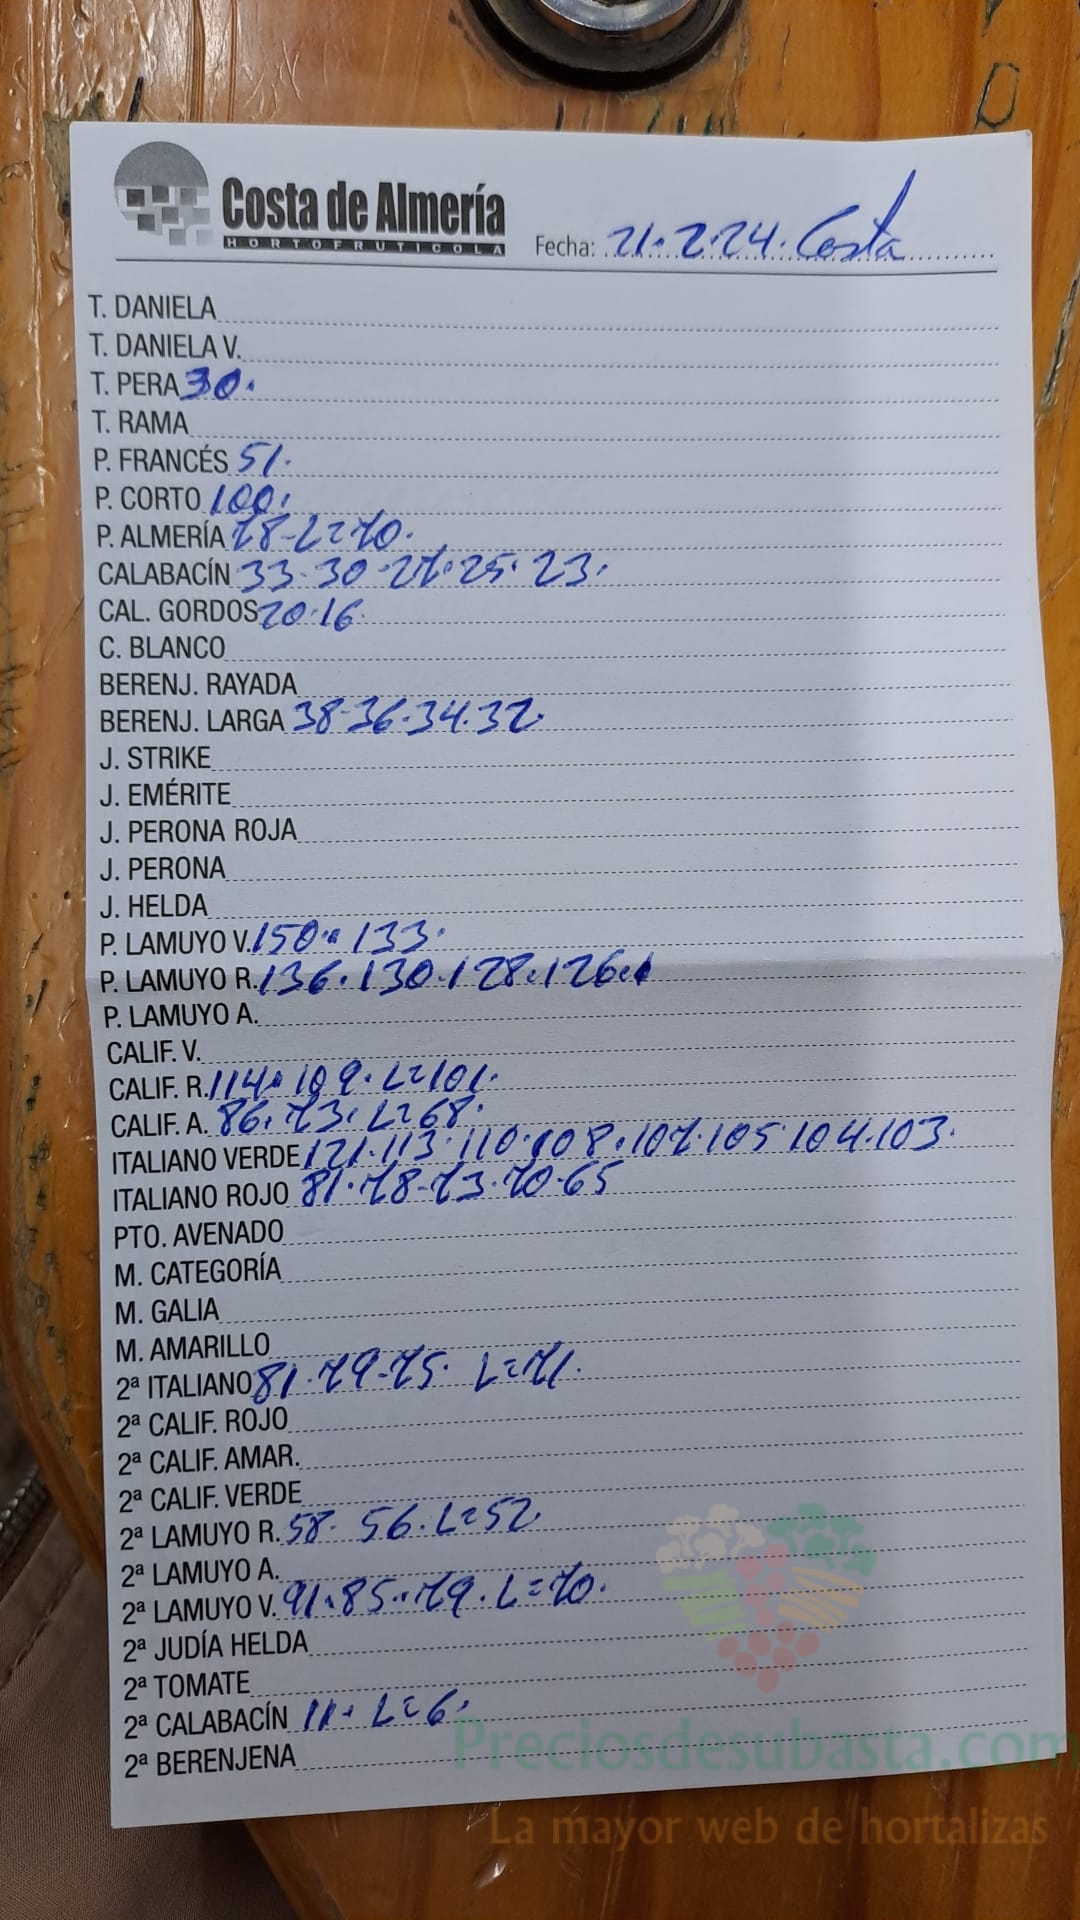 Costa de Almería
HORTOFRUTICOLA
Fecha: 21.2.24. Costa
T. DANIELA
T. DANIELA V.
T. PERA 30.
T. RAMA
P. FRANCÉS 51.
P. CORTO 100.
P. ALMERÍA 78-L=70.
CALABACÍN 33.30.27.25.23.
CAL. GORDOS 20.16.
C. BLANCO
BERENJ. RAYADA
BERENJ. LARGA 38.36.34.32.
J. STRIKE
J. EMÉRITE
J. PERONA ROJA
J. PERONA
J. HELDA
P. LAMUYO V. 150.133.
P. LAMUYO R. 136.130.128.126.
P. LAMUYO A.
CALIF. V.
CALIF. R. 114.109.L=101.
CALIF. A. 86.73.L=68.
ITALIANO VERDE 121.113.110.108.107.105.104.103.
ITALIANO ROJO 81.78-73.70.65
PTO. AVENADO
M. CATEGORÍA
M. GALIA
M. AMARILLO
2ª ITALIANO 81.79-75. L=71.
2ª CALIF. ROJO
2ª CALIF. AMAR.
2ª CALIF. VERDE
2ª LAMUYO R. 58. 56.L=52.
2ª LAMUYO A.
2ª LAMUYO V. 91.85..79.L=70.
2ª JUDÍA HELDA
2ª TOMATE
2ª CALABACÍN 11. L=6.
2ª BERENJENA
Preciosdesubasta.com
La mayor web de hortalizas